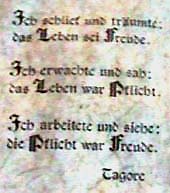 Ich schlief und träumte:
das Leben sei Freude.
Ich erwachte und sah:
das Leben war Pflicht.
Ich arbeitete und siehe:
die Pflicht war Freude.
Tagore